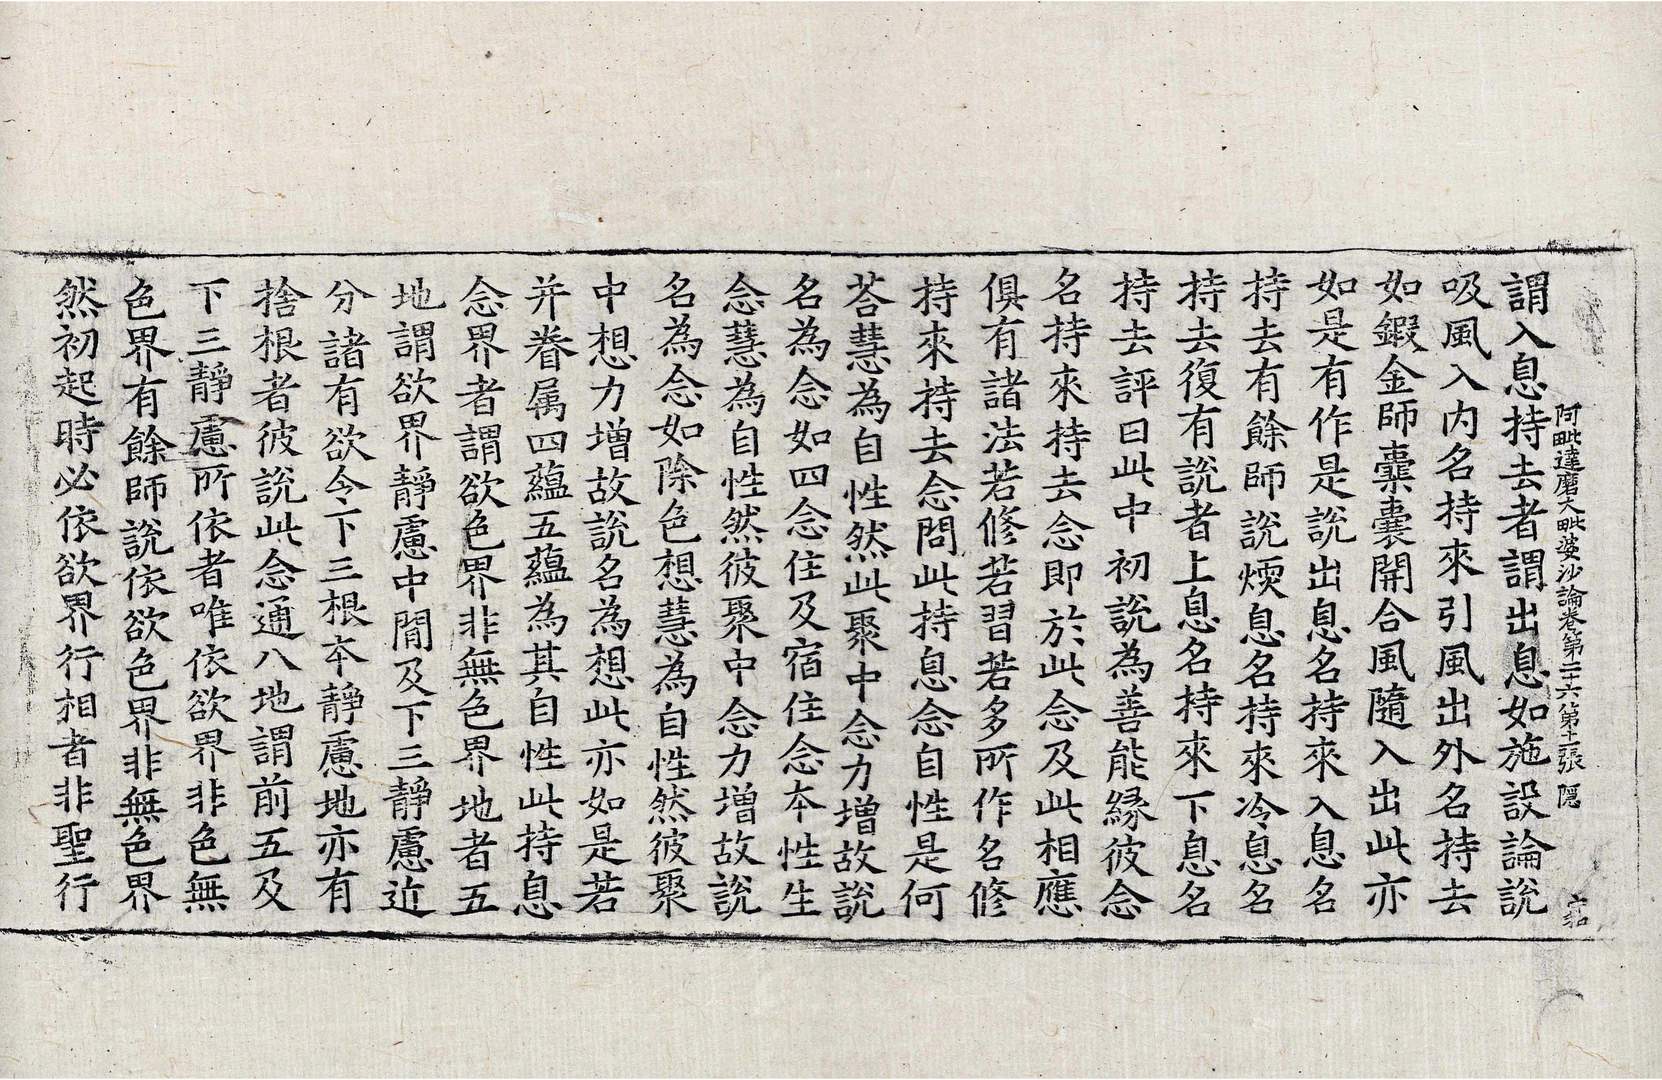 阿毗達磨大毗婆沙論卷第二十六 第十二張 隱
謂入息持去者謂出息如施設論說
吸風入內名持來引風出外名持去
如鍜金師橐囊開合風隨入出此亦
如是有作是說出息名持來入息名
持去有餘師說煗息名持來冷息名
持去復有說者上息名持來下息名
持去評曰此中初說為善能緣彼念
名持來持去念即於此念及此相應
俱有諸法若修若習若多所作名修
持來持去念問此持息念自性是何
荅慧為自性然此聚中念力增故說
名為念如四念住及宿住念本性生
念慧為自性然彼聚中念力增故說
名為念如除色想慧為自性然彼聚
中想力增故說名為想此亦如是若
并眷属四蘊五蘊為其自性此持息
念界者謂欲色界非無色界地者五
地謂欲界靜慮中間及下三靜慮近
分諸有欲令下三根本靜慮地亦有
捨根者彼說此念通八地謂前五及
下三靜慮所依者唯依欲界非色無
色界有餘師說依欲色界非無色界
然初起時必依欲界行相者非聖行